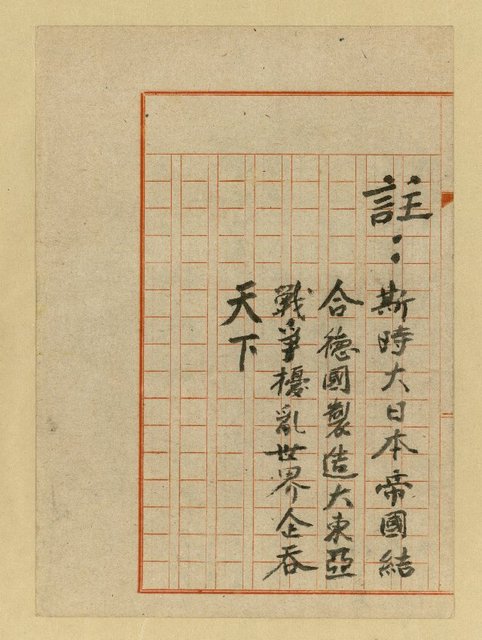 註：斯時大日本帝國結
合德國製造大東亞
戰爭擾亂世界企吞
天下